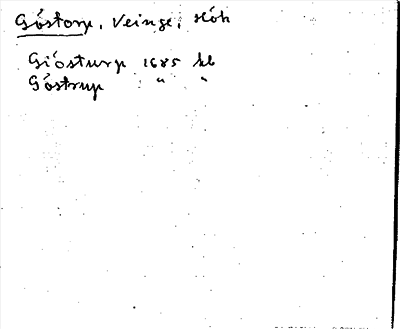 Göstorp, Veinge, Höh
Giösturp 1685 kb
Göstrup " "